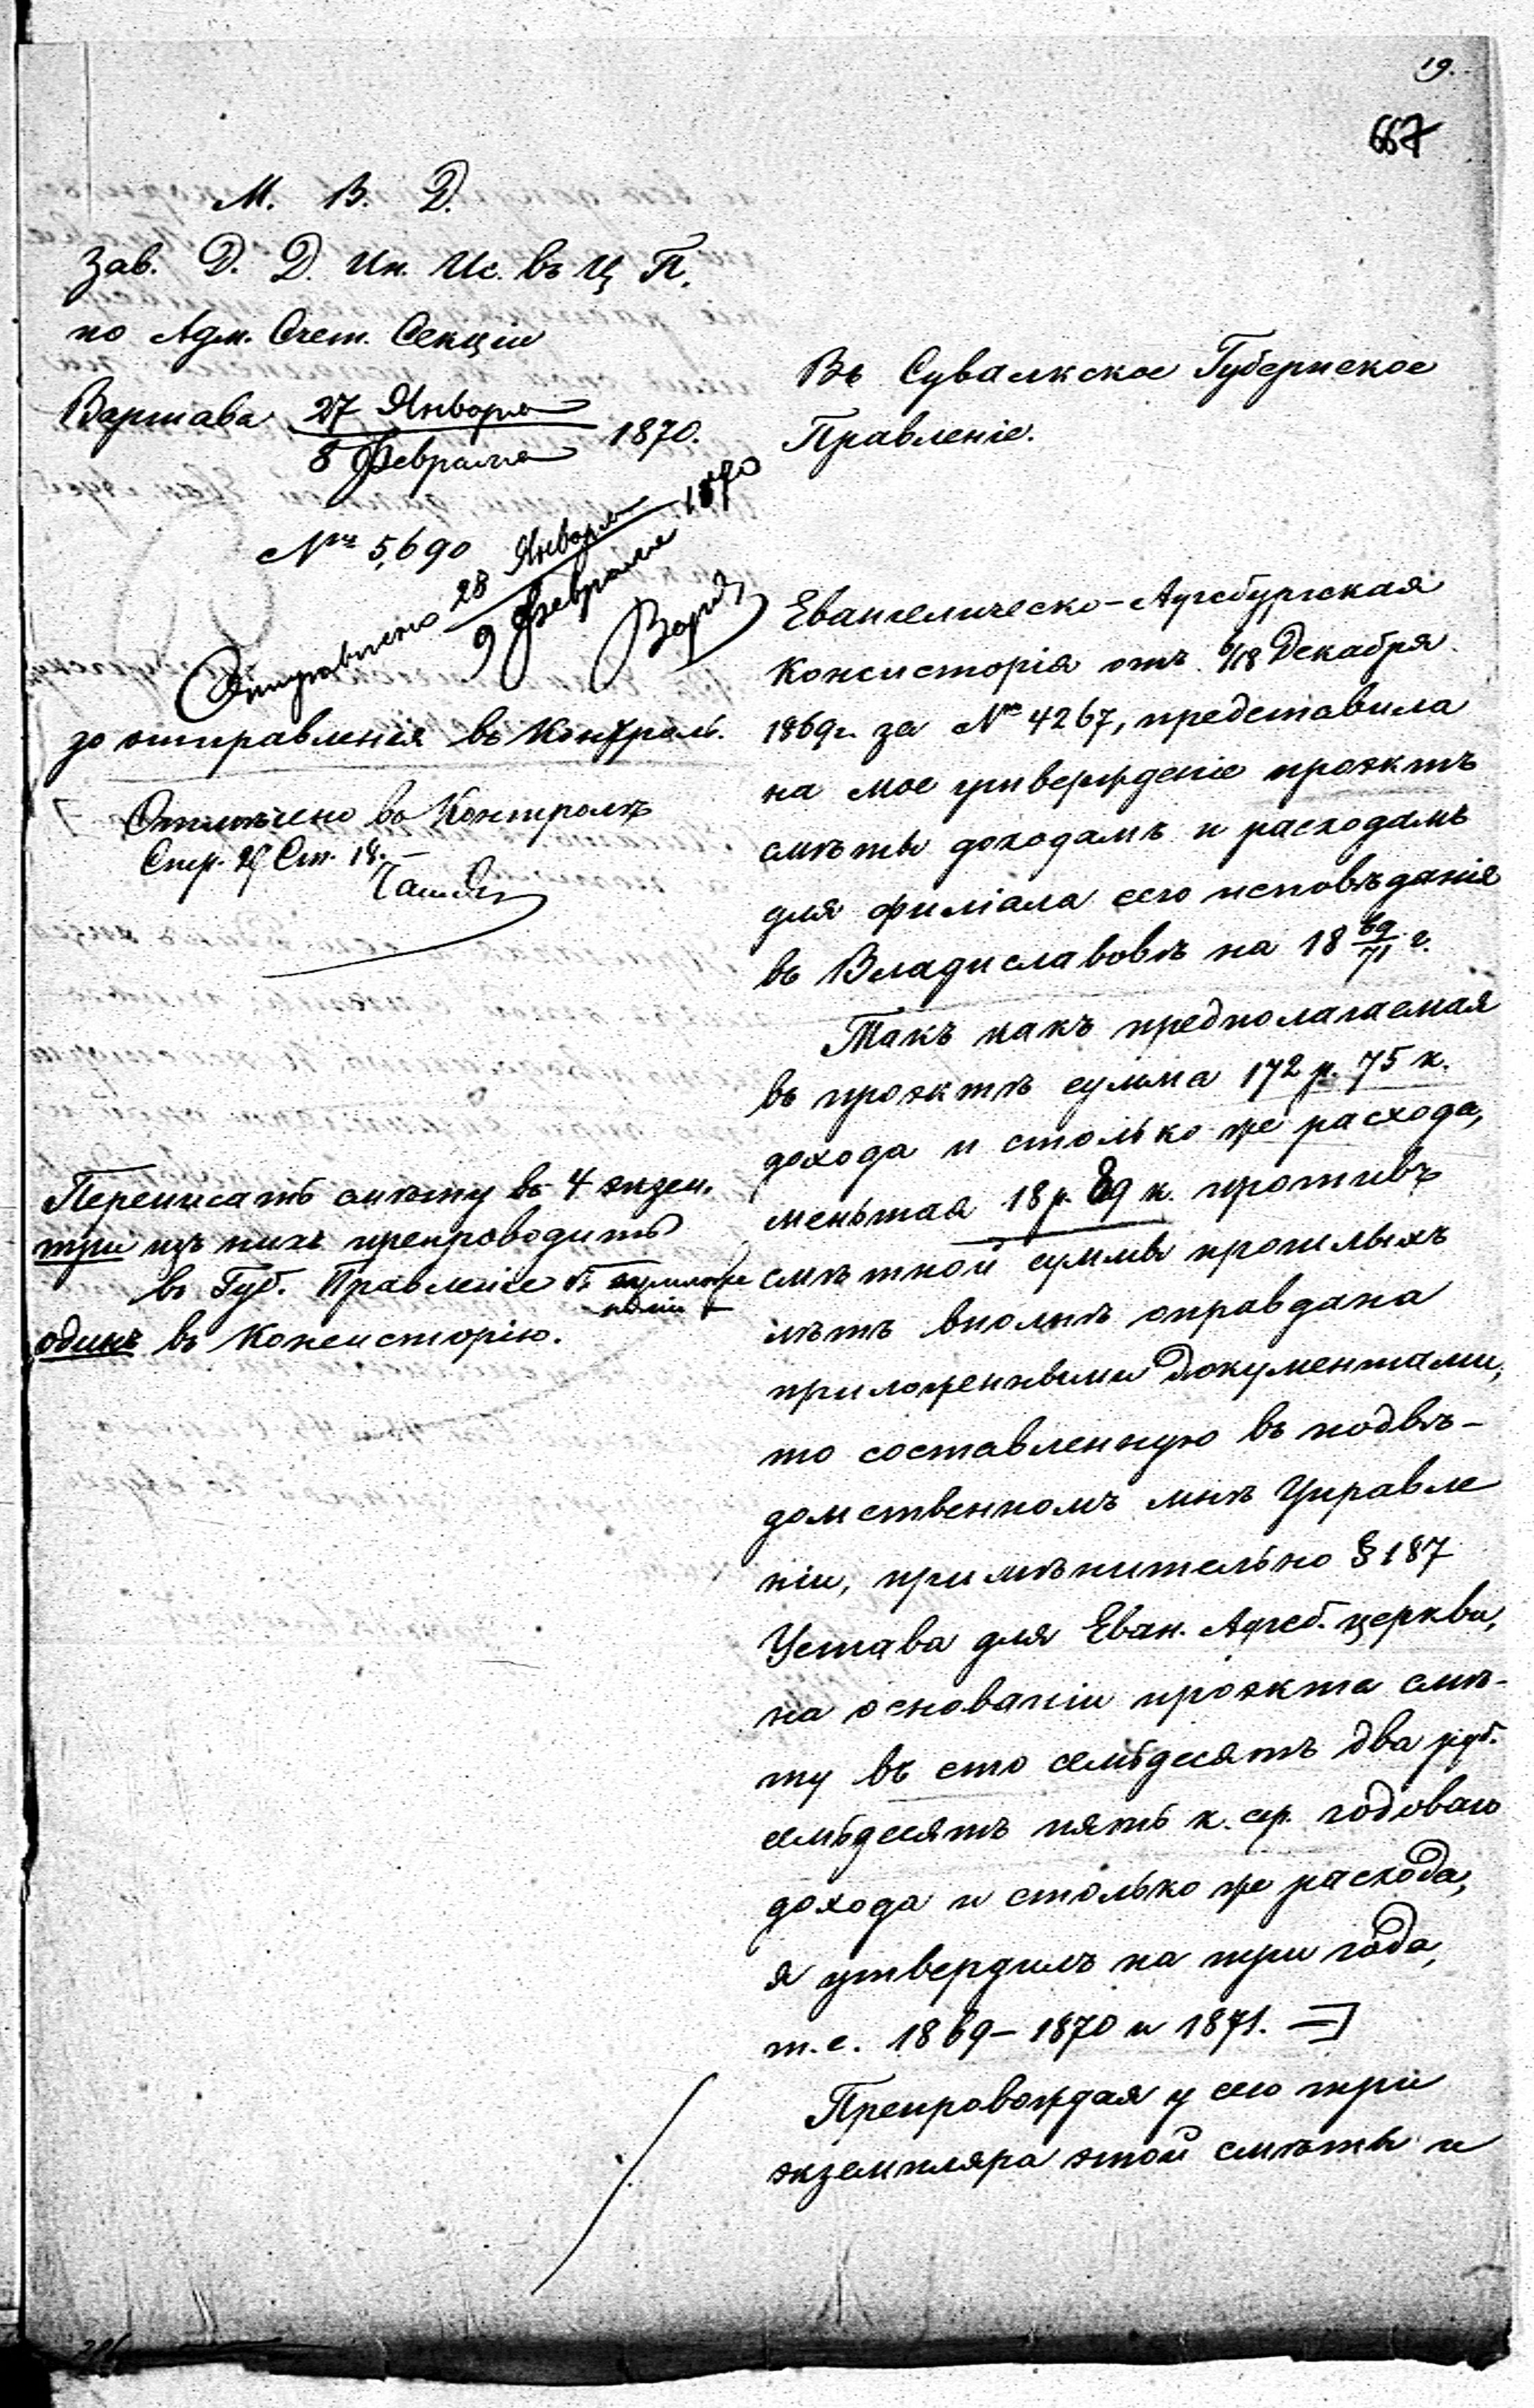 19.
667
М. В. Д.
Зав. Д. Д. Ин. Ис. въ Ц П.
по Адм. Счет. Секціи
Варшава 27 Января / 8 Февраля 1870.
№ 5,690
Отправлено 28 Января / 9 Февраля 1870
по отправленія въ Контроль.
Отмѣчено въ Контролѣ
Стр. Ст. 18.
Переписать смѣту въ 4 экзем.
три изъ нихъ препроводить
въ Губ. Правленіе
одинъ въ Консисторію.
Въ Сувалкское Губернское
Правленіе.
Евангелическо-Аугсбургская
Консисторія отъ 6/18 Декабря
1869 г. за № 4267, представила
на мое утвержденіе проэктъ
смѣты доходамъ и расходамъ
для филіала сего исповѣданія
въ Владиславовѣ на 18 69/71 г.
Такъ какъ предполагаемая
въ проэктѣ сумма 172 р. 75 к.
дохода и столько же расхода,
меньшая 18 р. 89 к. противъ
смѣтной суммы прошлыхъ
лѣтъ вполнѣ оправдана
приложенными документами,
то составленную въ подвѣ-
домственномъ мнѣ Управле
ніи, примѣнительно § 187
Устава для Еван. Аугсб. церкви,
на основаніи проэкта смѣ-
ту въ сто семьдесятъ два руб.
семьдесятъ пять к. сер. годоваго
дохода и столько же расхода,
я утвердилъ на три года,
т. е. 1869 – 1870 и 1871.
Препровождая у сего три
экземпляра этой смѣты и